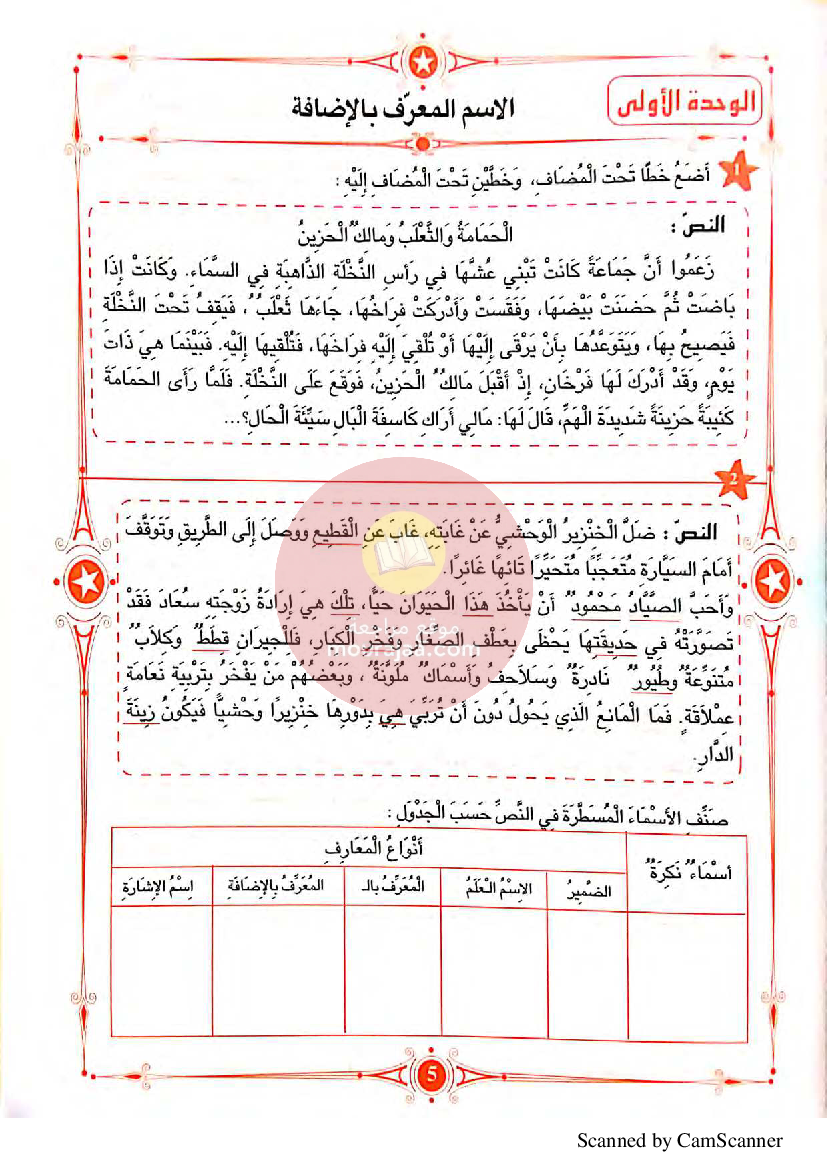 الوحدة الأولى
الاسم المعرّف بالإضافة
1 أَضَعُ خَطًّا تَحْتَ الْمُضَافِ، وَخَطَّيْنِ تَحْتَ الْمُضَافِ إِلَيْهِ :
النصّ :
الْحَمَامَةُ وَالثَّعْلَبُ وَمَالِكٌ الْحَزِينُ
زَعَمُوا أَنَّ جَمَاعَةً كَانَتْ تَبْنِي عُشَّهَا فِي رَأْسِ النَّخْلَةِ الذَّاهِبَةِ فِي السَّمَاءِ. وَكَانَتْ إِذَا
بَاضَتْ ثُمَّ حَضَنَتْ بَيْضَهَا، وَفَقَسَتْ وَأَدْرَكَتْ فِرَاخُهَا، جَاءَهَا ثَعْلَبٌ، فَيَقِفُ تَحْتَ النَّخْلَةِ
فَيَصِيحُ بِهَا، وَيَتَوَعَّدُهَا بِأَنْ يَرْقَى إِلَيْهَا أَوْ تُلْقِيَ إِلَيْهِ فِرَاخَهَا، فَتُلْقِيهَا إِلَيْهِ. فَبَيْنَمَا هِيَ ذَاتَ
يَوْمٍ، وَقَدْ أَدْرَكَ لَهَا فَرْخَانِ، إِذْ أَقْبَلَ مَالِكٌ الْحَزِينُ، فَوَقَعَ عَلَى النَّخْلَةِ. فَلَمَّا رَأَى الْحَمَامَةَ
كَئِيبَةً حَزِينَةً شَدِيدَةَ الْهَمِّ، قَالَ لَهَا: مَالِي أَرَاكِ كَاسِفَةَ الْبَالِ سَيِّئَةَ الْحَالِ؟...
2
النصّ : ضَلَّ الْخِنْزِيرُ الْوَحْشِيُّ عَنْ غَابَتِهِ، غَابَ عَنِ الْقَطِيعِ وَوَصَلَ إِلَى الطَّرِيقِ وَتَوَقَّفَ
أَمَامَ السَيَّارَةِ مُتَعَجِّبًا مُتَحَيِّرًا تَائِهًا غَائِرًا.
وَأَحَبَّ الصَّيَّادُ مَحْمُودٌ أَنْ يَأْخُذَ هَذَا الْحَيَوَانَ حَيًّا، تِلْكَ هِيَ إِرَادَةُ زَوْجَتِهِ سُعَادَ فَقَدْ
تَصَوَّرَتْهُ فِي حَدِيقَتِهَا يَحْظَى بِعَطْفِ الصِّغَارِ وَفَخْرِ الْكِبَارِ، فَلِلْجِيرَانِ قِطَطٌ وَكِلَابٌ
مُتَنَوِّعَةٌ وَطُيُورٌ نَادِرَةٌ وَسَلَاحِفُ وَأَسْمَاكٌ مُلَوَّنَةٌ، وَبَعْضُهُمْ مَنْ يَفْخَرُ بِتَرْبِيَةِ نَعَامَةٍ
عِمْلَاقَةٍ. فَمَا الْمَانِعُ الَّذِي يَحُولُ دُونَ أَنْ تُرَبِّيَ هِيَ بِدَوْرِهَا خِنْزِيرًا وَحْشِيًّا فَيَكُونُ زِينَةَ
الدَّارِ.
موقع مراجعة
mourajaa.com
صَنِّفِ الأَسْمَاءَ الْمُسَطَّرَةَ فِي النَّصِّ حَسَبَ الْجَدْوَلِ :
أَسْمَاءٌ نَكِرَةٌ
أَنْوَاعُ الْمَعَارِفِ
الضَّمِيرُ
الاِسْمُ الْعَلَمُ
الْمُعَرَّفُ بِالـ
الْمُعَرَّفُ بِالإِضَافَةِ
اِسْمُ الإِشَارَةِ
5
Scanned by CamScanner